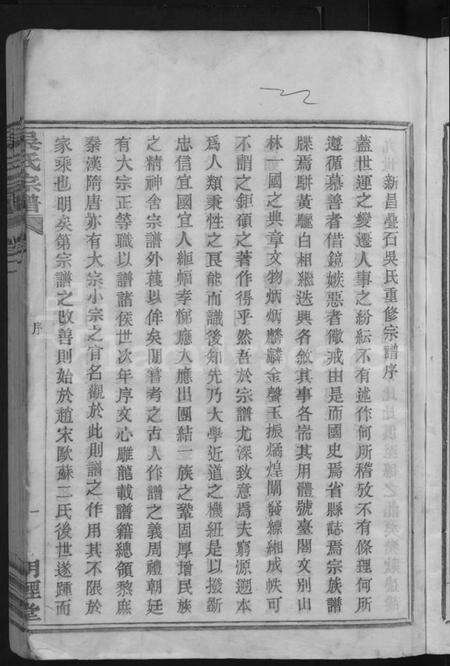 新昌疊石吳氏重修宗譜序
蓋世運之變遷人事之紛紜不有述作何所稽攷不有條理何所
遵循慕善者借鏡嫉惡者儆戒由是而國史焉省縣誌焉宗族譜
牒焉駢黃驪白相繼迭興各敘其事各崇其用體號臺閣文別山
林一國之典章文物炳炳麟麟金聲玉振熵煌闡發縹緗成帙可
不謂之鉅領之著作得乎然吾於宗譜尤深致意焉夫窮源遡本
爲人類秉性之良能而識後知先乃大學近道之機紐是以撥新
忠信宜國宜人絪縕孝悌應人應出團結一族之鞏固厚增民族
之精神舍宗譜外蔑以侔矣閒嘗考之古人作譜之義周禮朝廷
有大宗正等職以譜諸侯世次年序文心雕龍載譜籍總領黎庶
秦漢隋唐亦有大宗小宗之官名觀於此則譜之作用其不限於
家乘也明矣第宗譜之改善則始於趙宋歐蘇二氏後世遂踵而
吳氏宗譜
序
一
明經堂